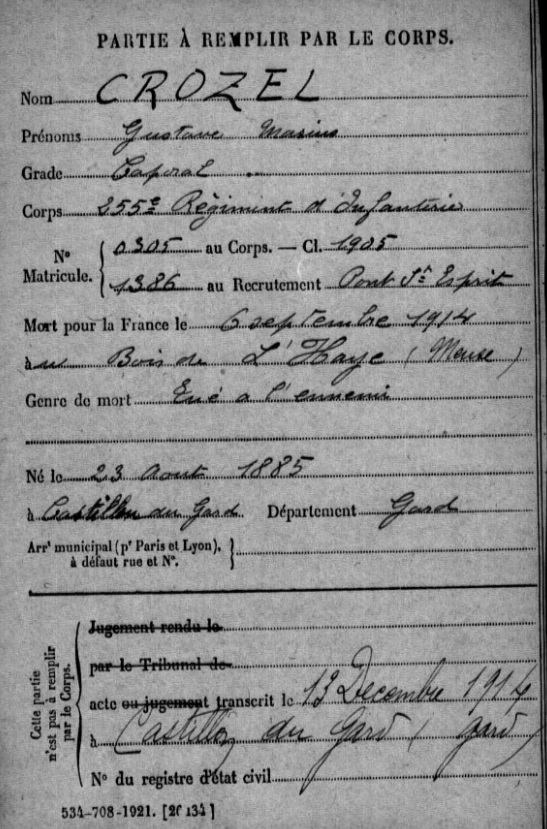 PARTIE À REMPLIR PAR LE CORPS.
Nom CROZEL
Prénoms Gustave Marius
Grade Caporal
Corps 255e Régiment d'Infanterie
No Matricule. 0305 au Corps. — Cl. 1905
1386 au Recrutement Pont St Esprit
Mort pour la France le 6 septembre 1914
au Bois de L'Haye (Meuse)
Genre de mort Tué à l'ennemi
Né le 23 Aout 1885
à Castillon du Gard Département Gard
Arrt municipal (pr Paris et Lyon),
à défaut rue et No.
Cette partie
n'est pas à remplir
par le Corps.
Jugement rendu le
par le Tribunal de
acte ou jugement transcrit le 13 Decembre 1914
à Castillon du Gard (gard)
No du registre d'état civil
534-708-1921. [26434]